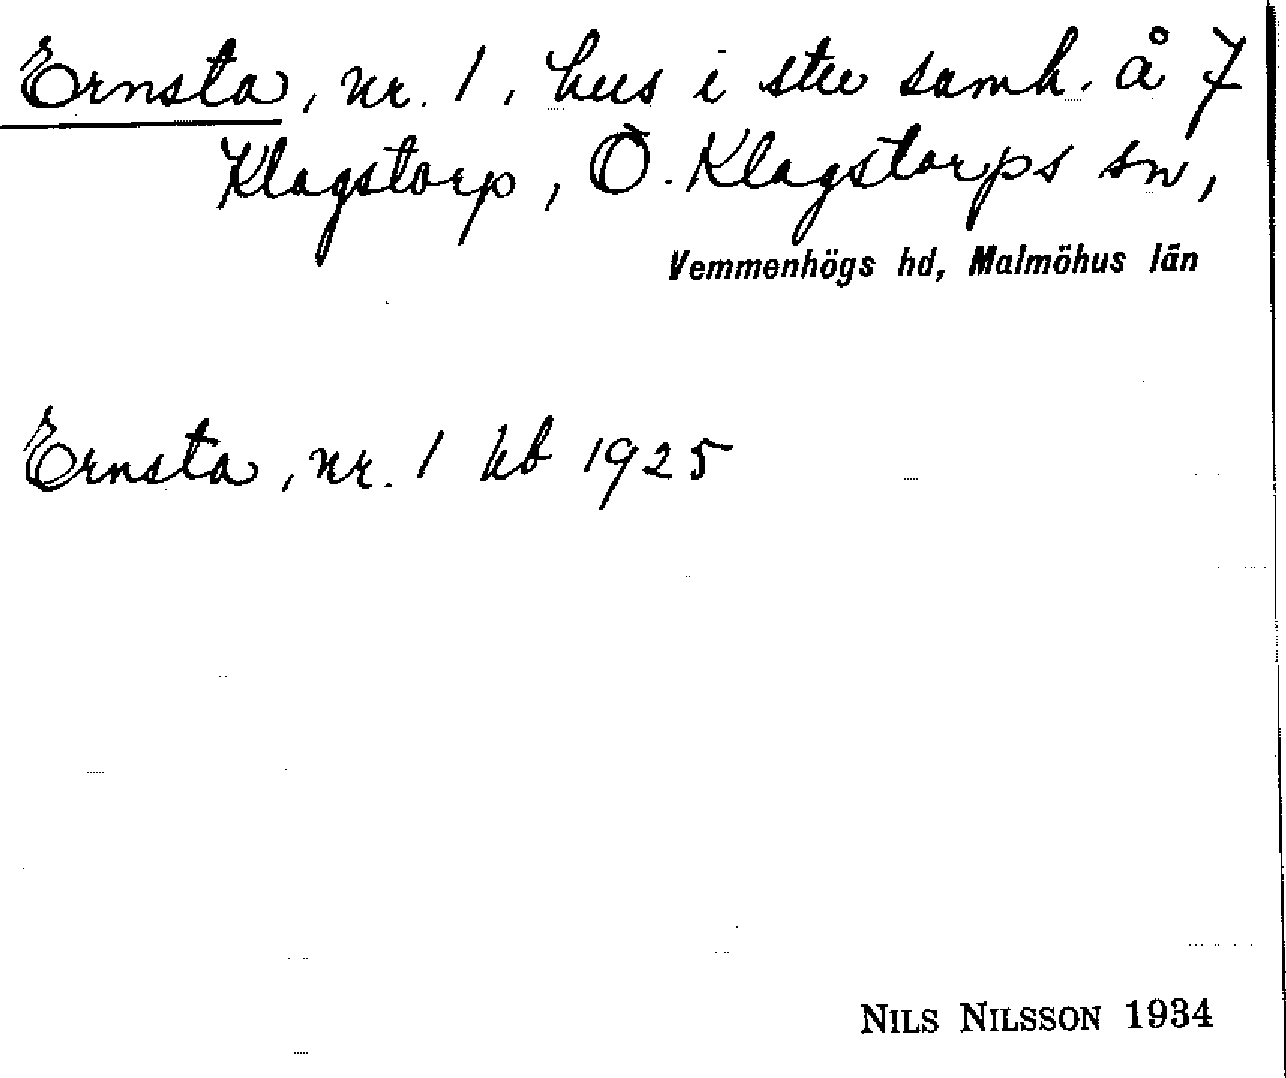 Ernsta, nr. 1, hus i stn samh. å 7
Klagstorp, Ö. Klagstorps sn,
Vemmenhögs hd, Malmöhus län
Ernsta, nr. 1 kb 1925
NILS NILSSON 1934